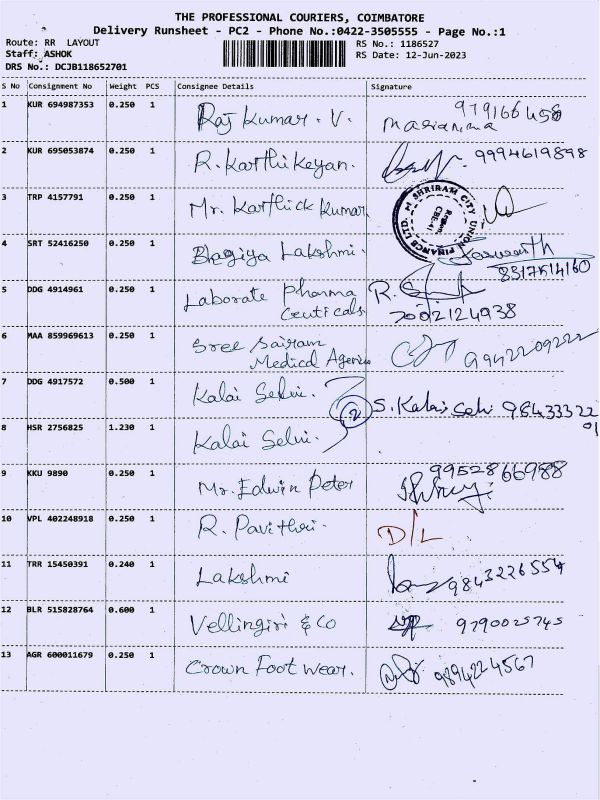 THE PROFESSIONAL COURIERS, COIMBATORE
Delivery Runsheet - PC2 - Phone No.:0422-3505555 - Page No.:1
Route: RR LAYOUT
RS No.: 1186527
Staff: ASHOK
RS Date: 12-Jun-2023
DRS No.: DCJB118652701
S No Consignment No Weight PCS Consignee Details Signature
1 KUR 694987353 0.250 1 Raj Kumar. V. Mariamma 979166458
2 KUR 695053874 0.250 1 R. Karthikeyan. 9994619898
3 TRP 4157791 0.250 1 Mr. Karthick Kumar
SHRIRAM CITY UNION FINANCE LTD.
CBE-41
4 SRT 52416250 0.250 1 Bhagiya Lakshmi.
8317514160
5 DDG 4914961 0.250 1 Laborate Pharma
Ceuticals
7002124938
6 MAA 859969613 0.250 1 Sree Sairam
Medical Agencies
9942209222
7 DDG 4917572 0.500 1 Kalai Selvi. 2 S. Kalai Selvi 984333322
01
8 HSR 2756825 1.230 1 Kalai Selvi.
9 KKU 9890 0.250 1 Mr. Edwin Peter 9952866988
10 VPL 402248918 0.250 1 R. Pavithri. D/L
11 TRR 15450391 0.240 1 Lakshmi 9843226554
12 BLR 515828764 0.600 1 Vellingiri & Co 9790025745
13 AGR 600011679 0.250 1 Crown Foot Wear. 9894224567